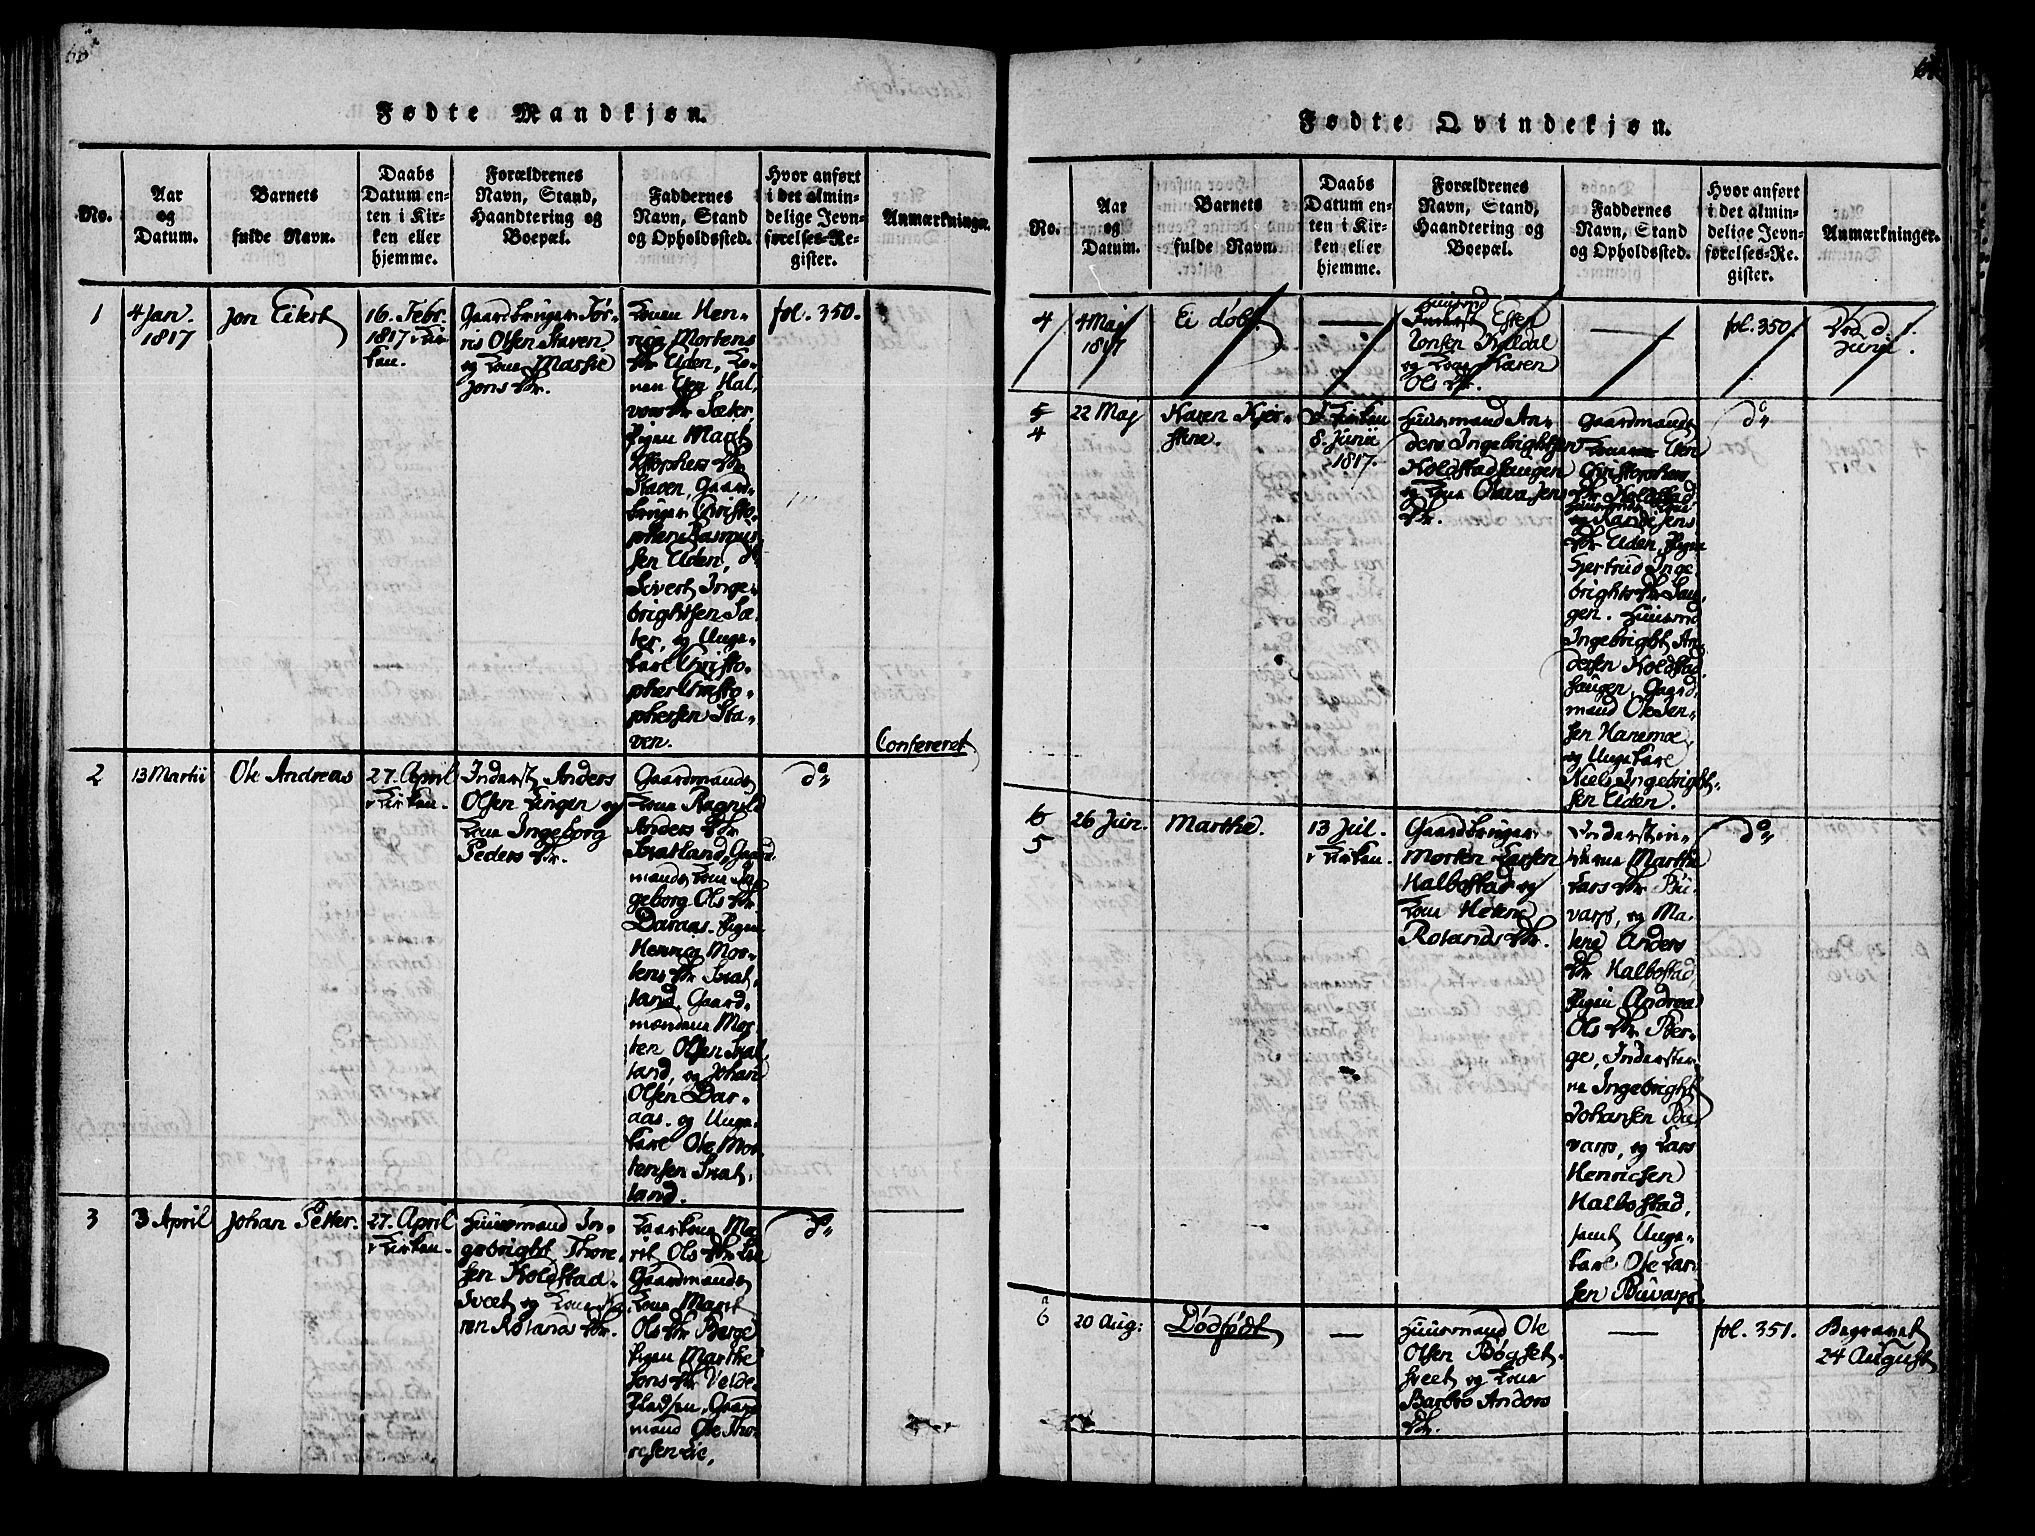 68
Fødte Mandkjøn.
No.
Aar
og
Datum.
Barnets
fulde Navn.
Daabs
Datum en-
ten i Kir-
ken eller
hjemme.
Forældrenes
Navn, Stand,
Haandtering og
Boepæl.
Faddernes
Navn, Stand
og Opholdssted.
Hvor anført
i det almin-
delige Jevn-
førelses-Re-
gister.
Anmærkninger.
1
4 Jan.
1817
Jon Eilert
16. Febr.
1817 i Kir-
ken.
Gaardbruger Tør-
ris Olsen Staven
og Kone Massie
Jons Dtr.
Konen Hen-
rica Mortens
Dtr Elden, Ko-
nen Elen Hal-
vors Dtr Sæter
Pigen Marit
Staven, Gaard-
bruger Christo-
pher Rasmus-
sen Elden, do
Sivert Inge-
brightsen Sæ-
ter, og Unge-
karl Christo-
pher Christo-
phersen Sta-
ven.
fol. 350.
Confereret
2
13 Martii
Ole Andreas
27. April
i Kirken.
Inderst Anders
Olsen Lingen og
Kone Ingeborg
Peders Dtr.
Gaardmands
Kone Ragnild
Anders Dtr
Gaard-
mands Kone In-
geborg Ols Dtr
Daraas. Pigen
Henrica Mor-
tens Dtr
Gaard-
mændene Mor-
ten Olsen
og Johan
Olsen Dar-
aas. og Unge-
karl Ole Mor-
tensen
do
3
3 April
Johan Petter.
27. April
i Kirken.
Huusmand In-
gebright Thore-
sen Koldstad-
Sveet og Kone Ka-
ren Rolands Dtr.
Ma-
rit Ols Dtr
Gaardmands
Kone Marit
Ols Dtr Berge
Pigen Marthe
Jons Dtr Velde
Pladsen, Gaard-
mand Ole Tho-
resen
do
Fødte Qvindekjøn.
No.
Aar
og
Datum.
Barnets
fulde Navn.
Daabs
Datum en-
ten i Kir-
ken eller
hjemme.
Forældrenes
Navn, Stand,
Haandtering og
Boepæl.
Faddernes
Navn, Stand
og Opholdssted.
Hvor anført
i det almin-
delige Jevn-
førelses-Re-
gister.
Anmærkninger.
4
4 Maj
1817
Ei døbt.
Huusmd
Esten
Jonsen Kaldal
og Kone Karen
Ols Dtr.
fol. 350
Død d. 1.
Junii.
5
4
22 Maj
Karen Kjer-
stine.
I Kirken
8. Junii
1817.
Huusmand An-
ders Ingebrightsen
Koldstadhaugen
og Kone Olava Jens
Dtr.
Gaardmands
Kone Elen
Christophers
Dtr Koldstad
og Kandi Jens
Dtr Elden, Pigen
Gjertrud Inge-
brights Dtr Hau-
gen. Huusmd
Ingebright An-
dersen Koldstad-
haugen, Gaard-
mand Ole Jen-
sen Hanemoe,
og Ungekarl
Niels Ingebright-
sen Elden.
do
6
5
26 Jun.
Marthe.
13 Jul.
i Kirken.
Gaardbruger
Morten Larsen
Halbostad og
Kone Helena
Rolands Dtr.
Marthe
Lars Dtr Bu-
varp, og Ma-
lene Anders
Dtr Halbostad,
Pigen Andrea
Ols Dtr Ber-
ge, Inderster-
ne Ingebright
Johansen Bu-
varp, og Lars
Henricsen
Halbostad,
samt Unge-
karl Ole Lar-
sen Buvarp
do
6
20 Aug:
Dødfødt
Huusmand Ole
Olsen Bøgset-
sveet og Kone
Barbro Anders
Dtr.
fol. 351.
Begravet
24 August